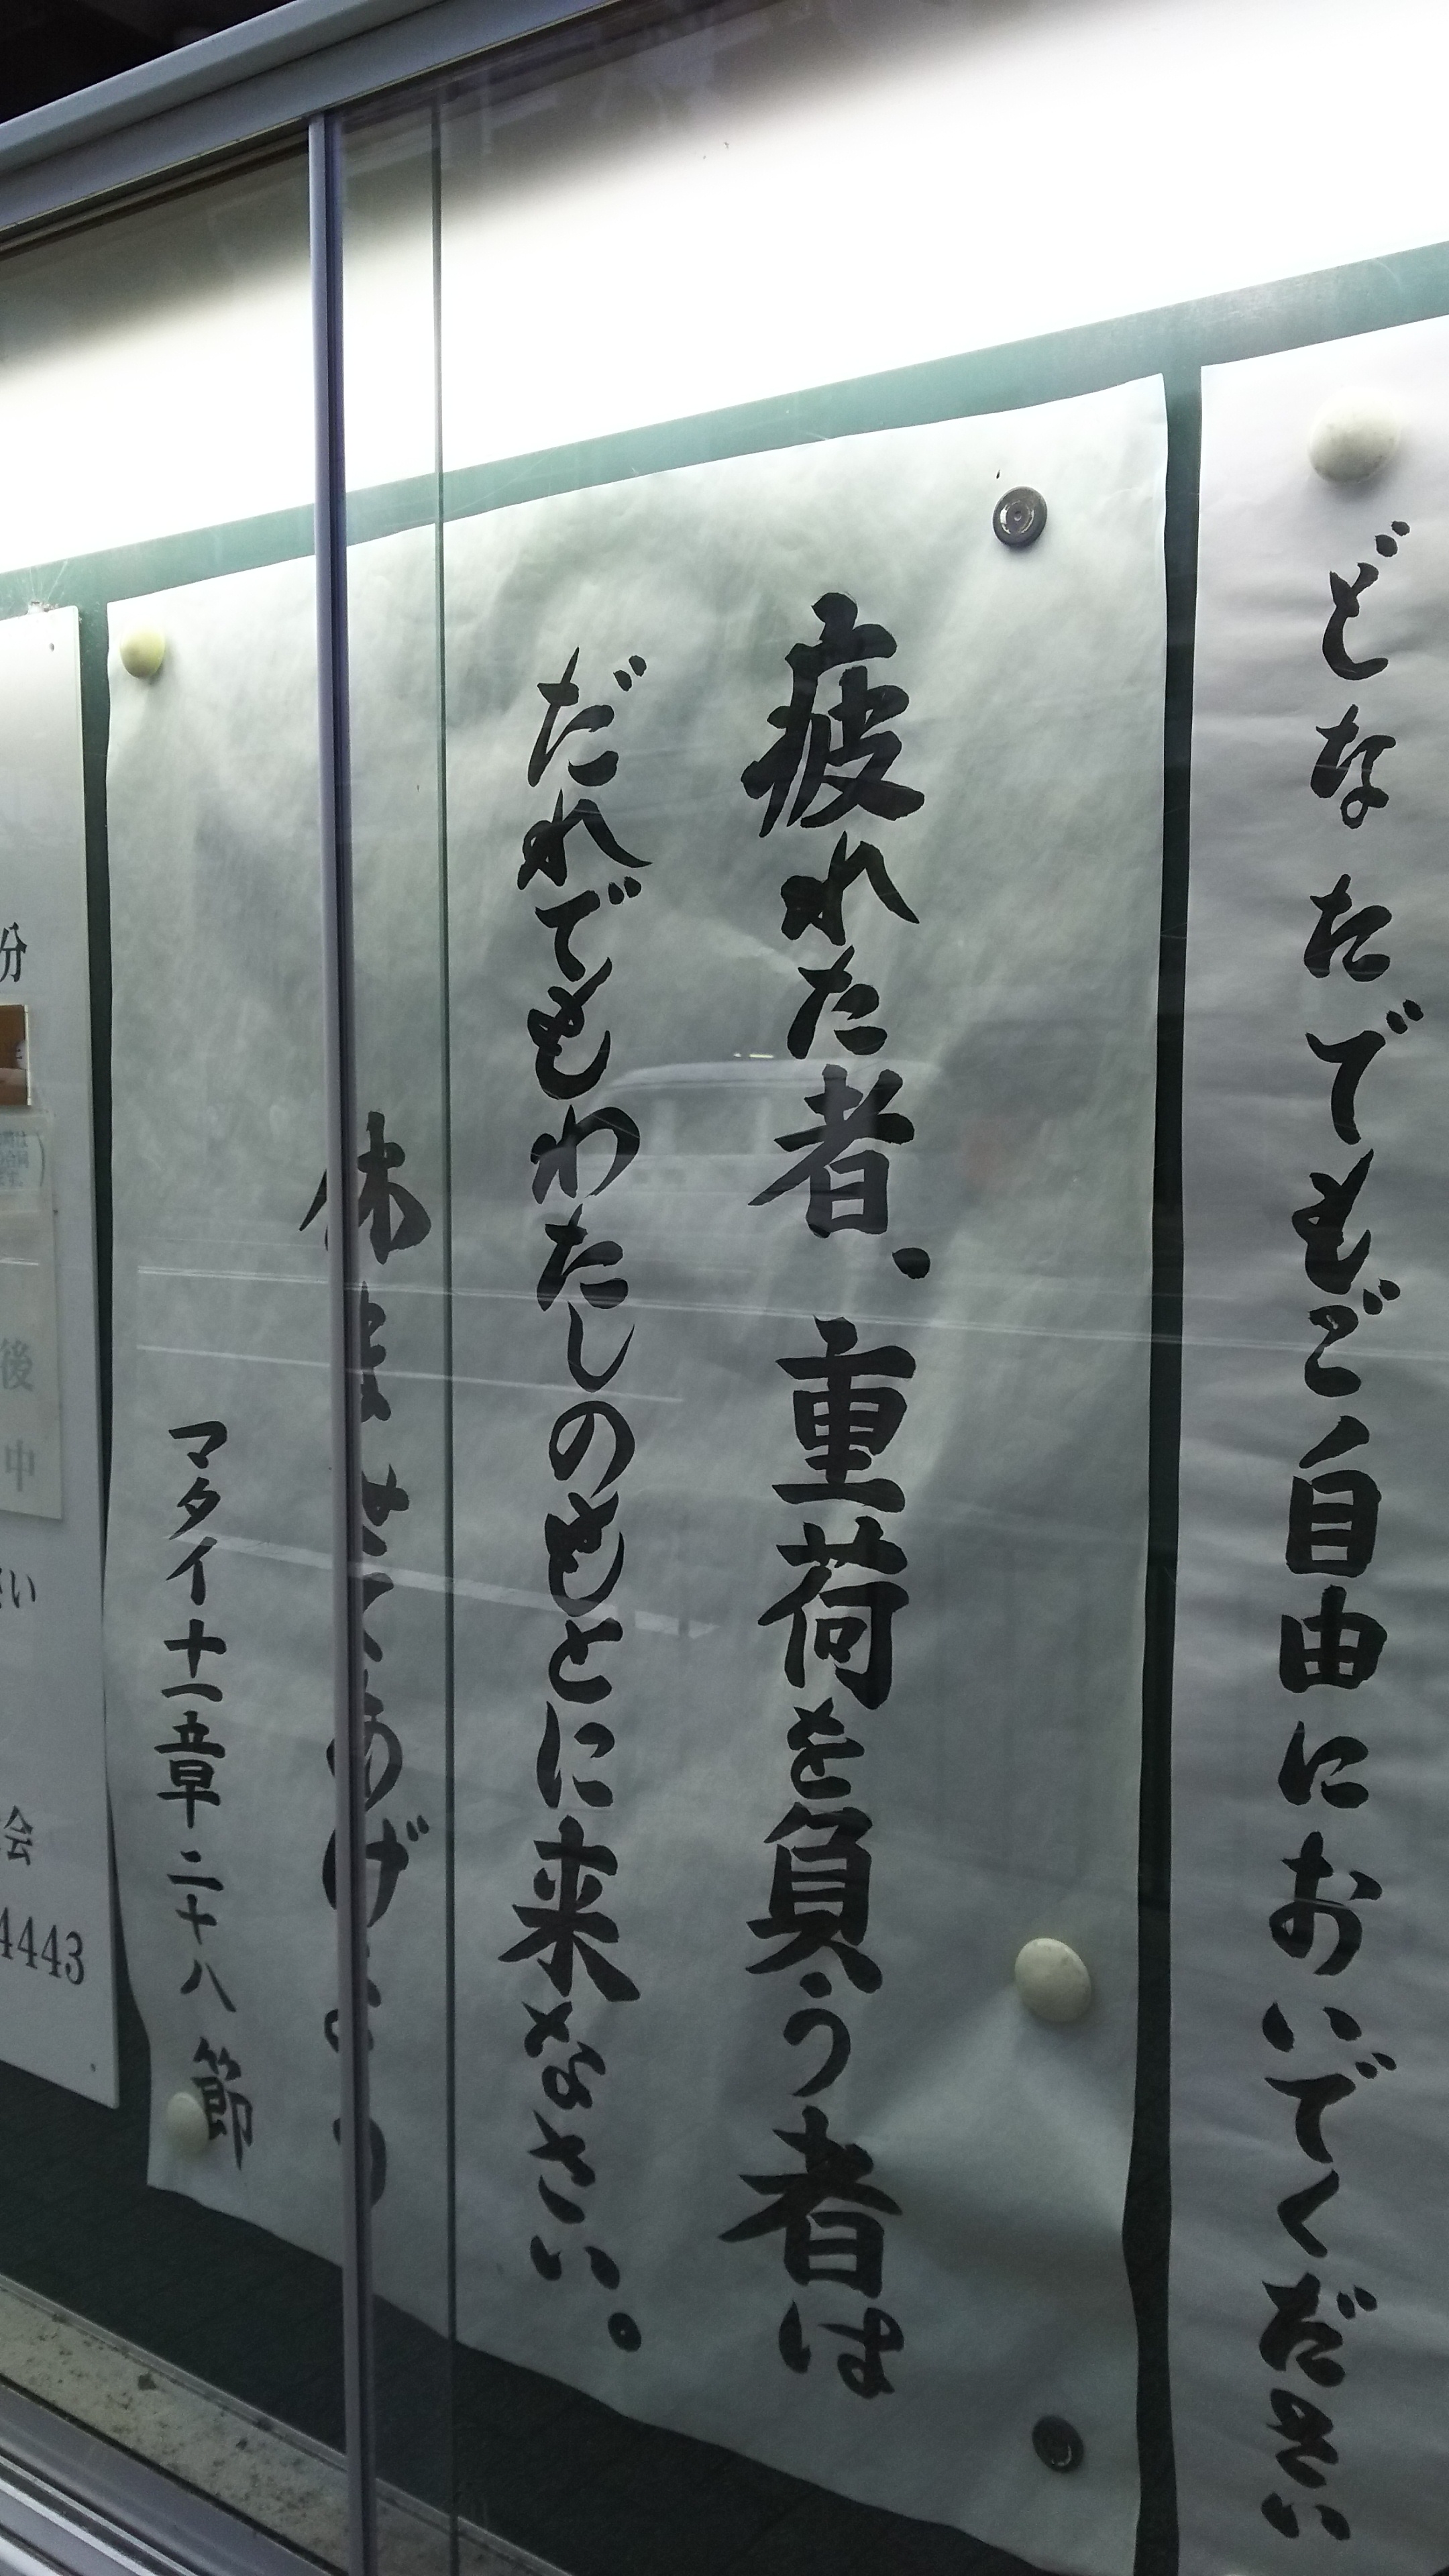 どなたでもご自由においでください
疲れた者、重荷を負う者は
だれでもわたしのもとに来なさい。
休ませてあげよう
マタイ十一章二十八節
分
後
中
さい
会
4443